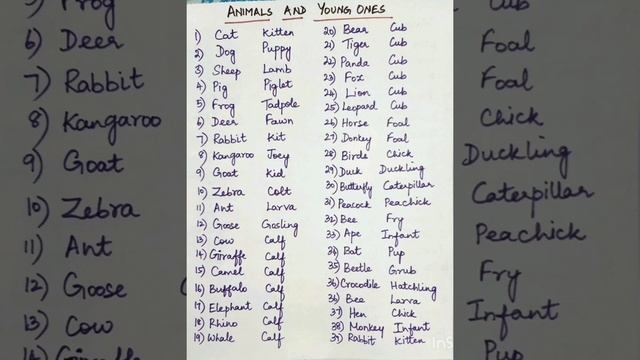 ANIMALS AND YOUNG ONES
1) Cat Kitten
2) Dog Puppy
3) Sheep Lamb
4) Pig Piglet
5) Frog Tadpole
6) Deer Fawn
7) Rabbit Kit
8) Kangaroo Joey
9) Goat Kid
10) Zebra Colt
11) Ant Larva
12) Goose Gosling
13) Cow Calf
14) Giraffe Calf
15) Camel Calf
16) Buffalo Calf
17) Elephant Calf
18) Rhino Calf
19) Whale Calf
20) Bear Cub
21) Tiger Cub
22) Panda Cub
23) Fox Cub
24) Lion Cub
25) Leopard Cub
26) Horse Foal
27) Donkey Foal
28) Birds Chick
29) Duck Duckling
30) Butterfly Caterpillar
31) Peacock Peachick
32) Bee Fry
33) Ape Infant
34) Bat Pup
35) Beetle Grub
36) Crocodile Hatchling
36) Bee Larva
37) Hen Chick
38) Monkey Infant
39) Rabbit Kitten
6) Deer
7) Rabbit
8) Kangaroo
9) Goat
10) Zebra
11) Ant
12) Goose
13) Cow
Cub
Foal
Foal
Chick
Duckling
Caterpillar
Peachick
Fry
Infant
Pup